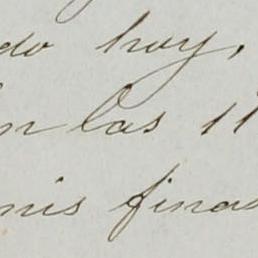 do hoy,
n las 11
mis finas